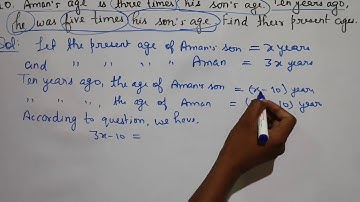 0. Aman's age is three times his son's age. Ten years ago,
he was five times his son's age. Find their present ages.
Sol: Let the present age of Aman's son = x years
and " " " " Aman = 3x years
Ten years ago, the age of Aman's son = (x-10) years
" " ", the age of Aman = ( 10) year
According to question, we have,
3x-10 =